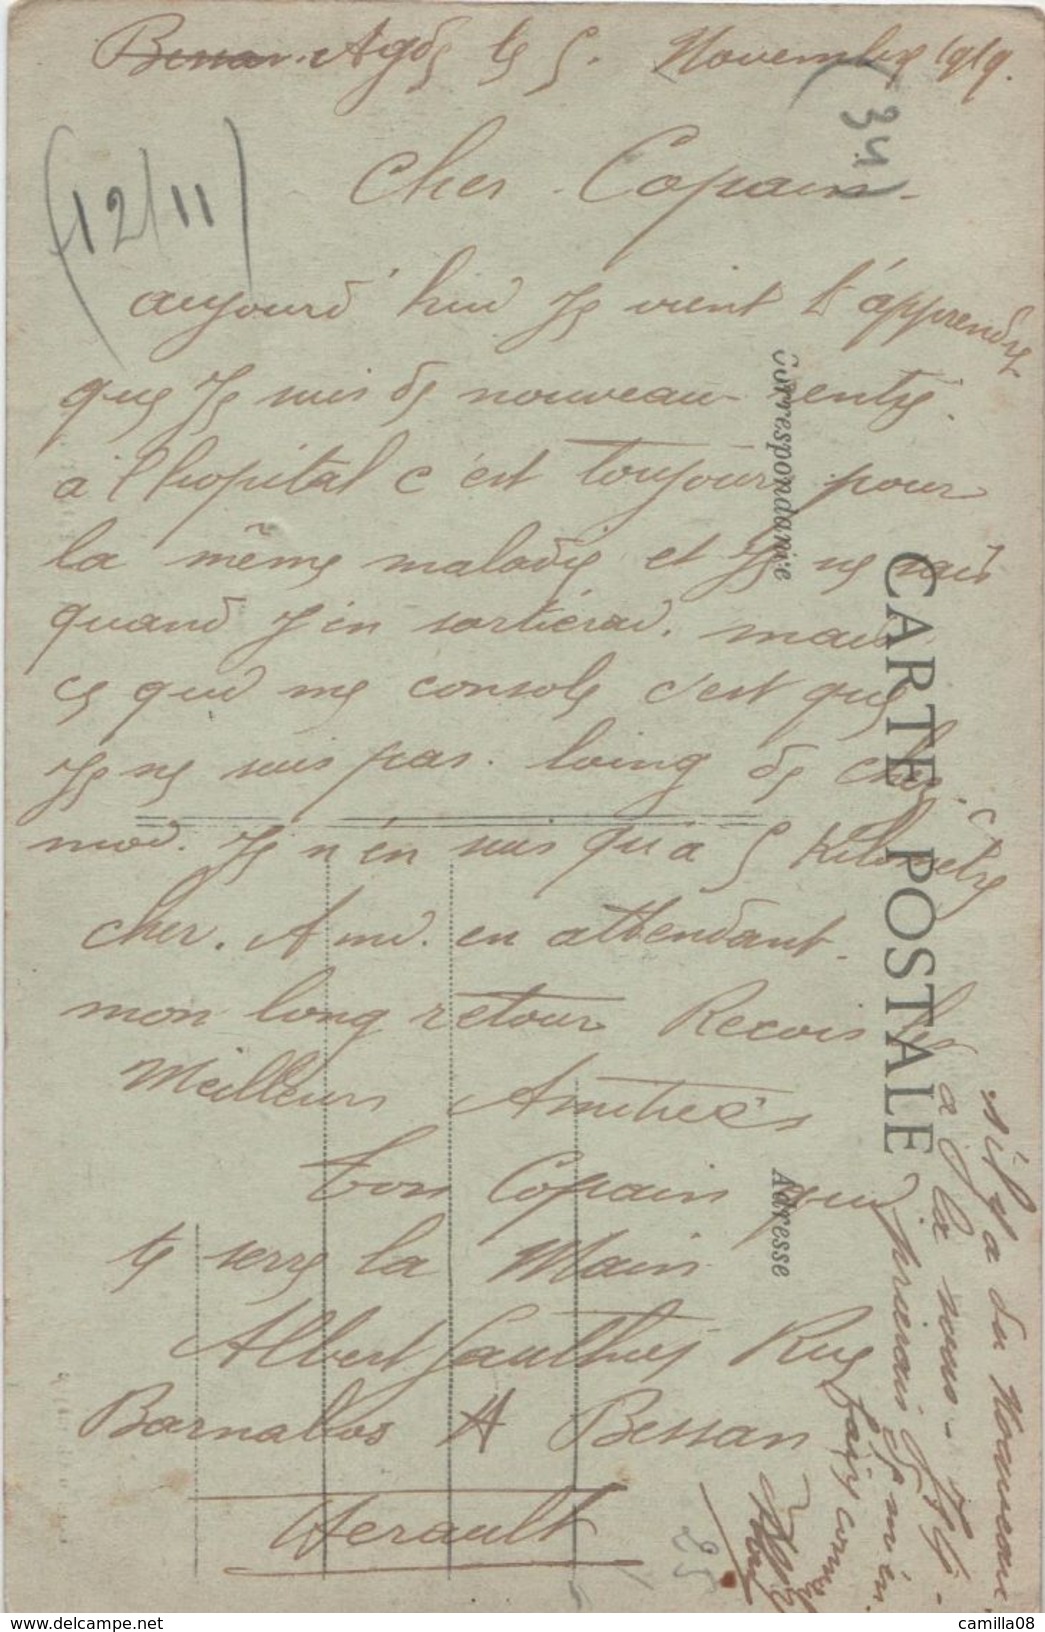 Bessan. Agde le 5. Novembre 1919.
(34)
(12/11)
Cher Copain
aujourd'hui Je vient t'apprendre
que Je suis de nouveau rentre.
a l'hopital c'est toujours pour
la même maladie et Je ne sais
quand J'en sortierai. mais
ce qui me console c'est que
Je ne suis pas. loing de chez
moi. Je n'en suis qu'a 5 Kilometre
cher. Ami. en attendant.
mon long retour Recois les
Meilleurs Amitieés
ton Copain qui
te serre la Main
Albert Gauthier Rue
Barnabos A Bessan
Herault
CARTE POSTALE
Correspondance
Adresse
s'il y a du Nouveau
a la
prierais
m'en
faire
25
delcampe.net
camilla08